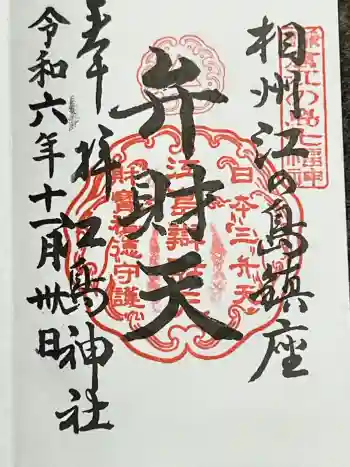 相州江の島鎮座
弁財天
奉拝 江島神社
令和六年十一月卅日
日本三弁天
財寶福徳守護